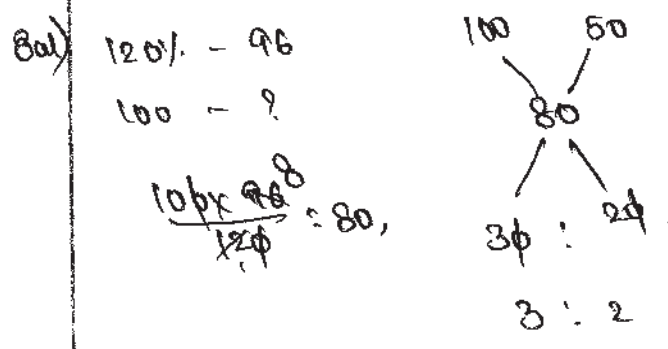 Sol) 120% - 96
100 - ?
100 x 96 8
120 : 80,
100 50
80
30 : 20
3 : 2